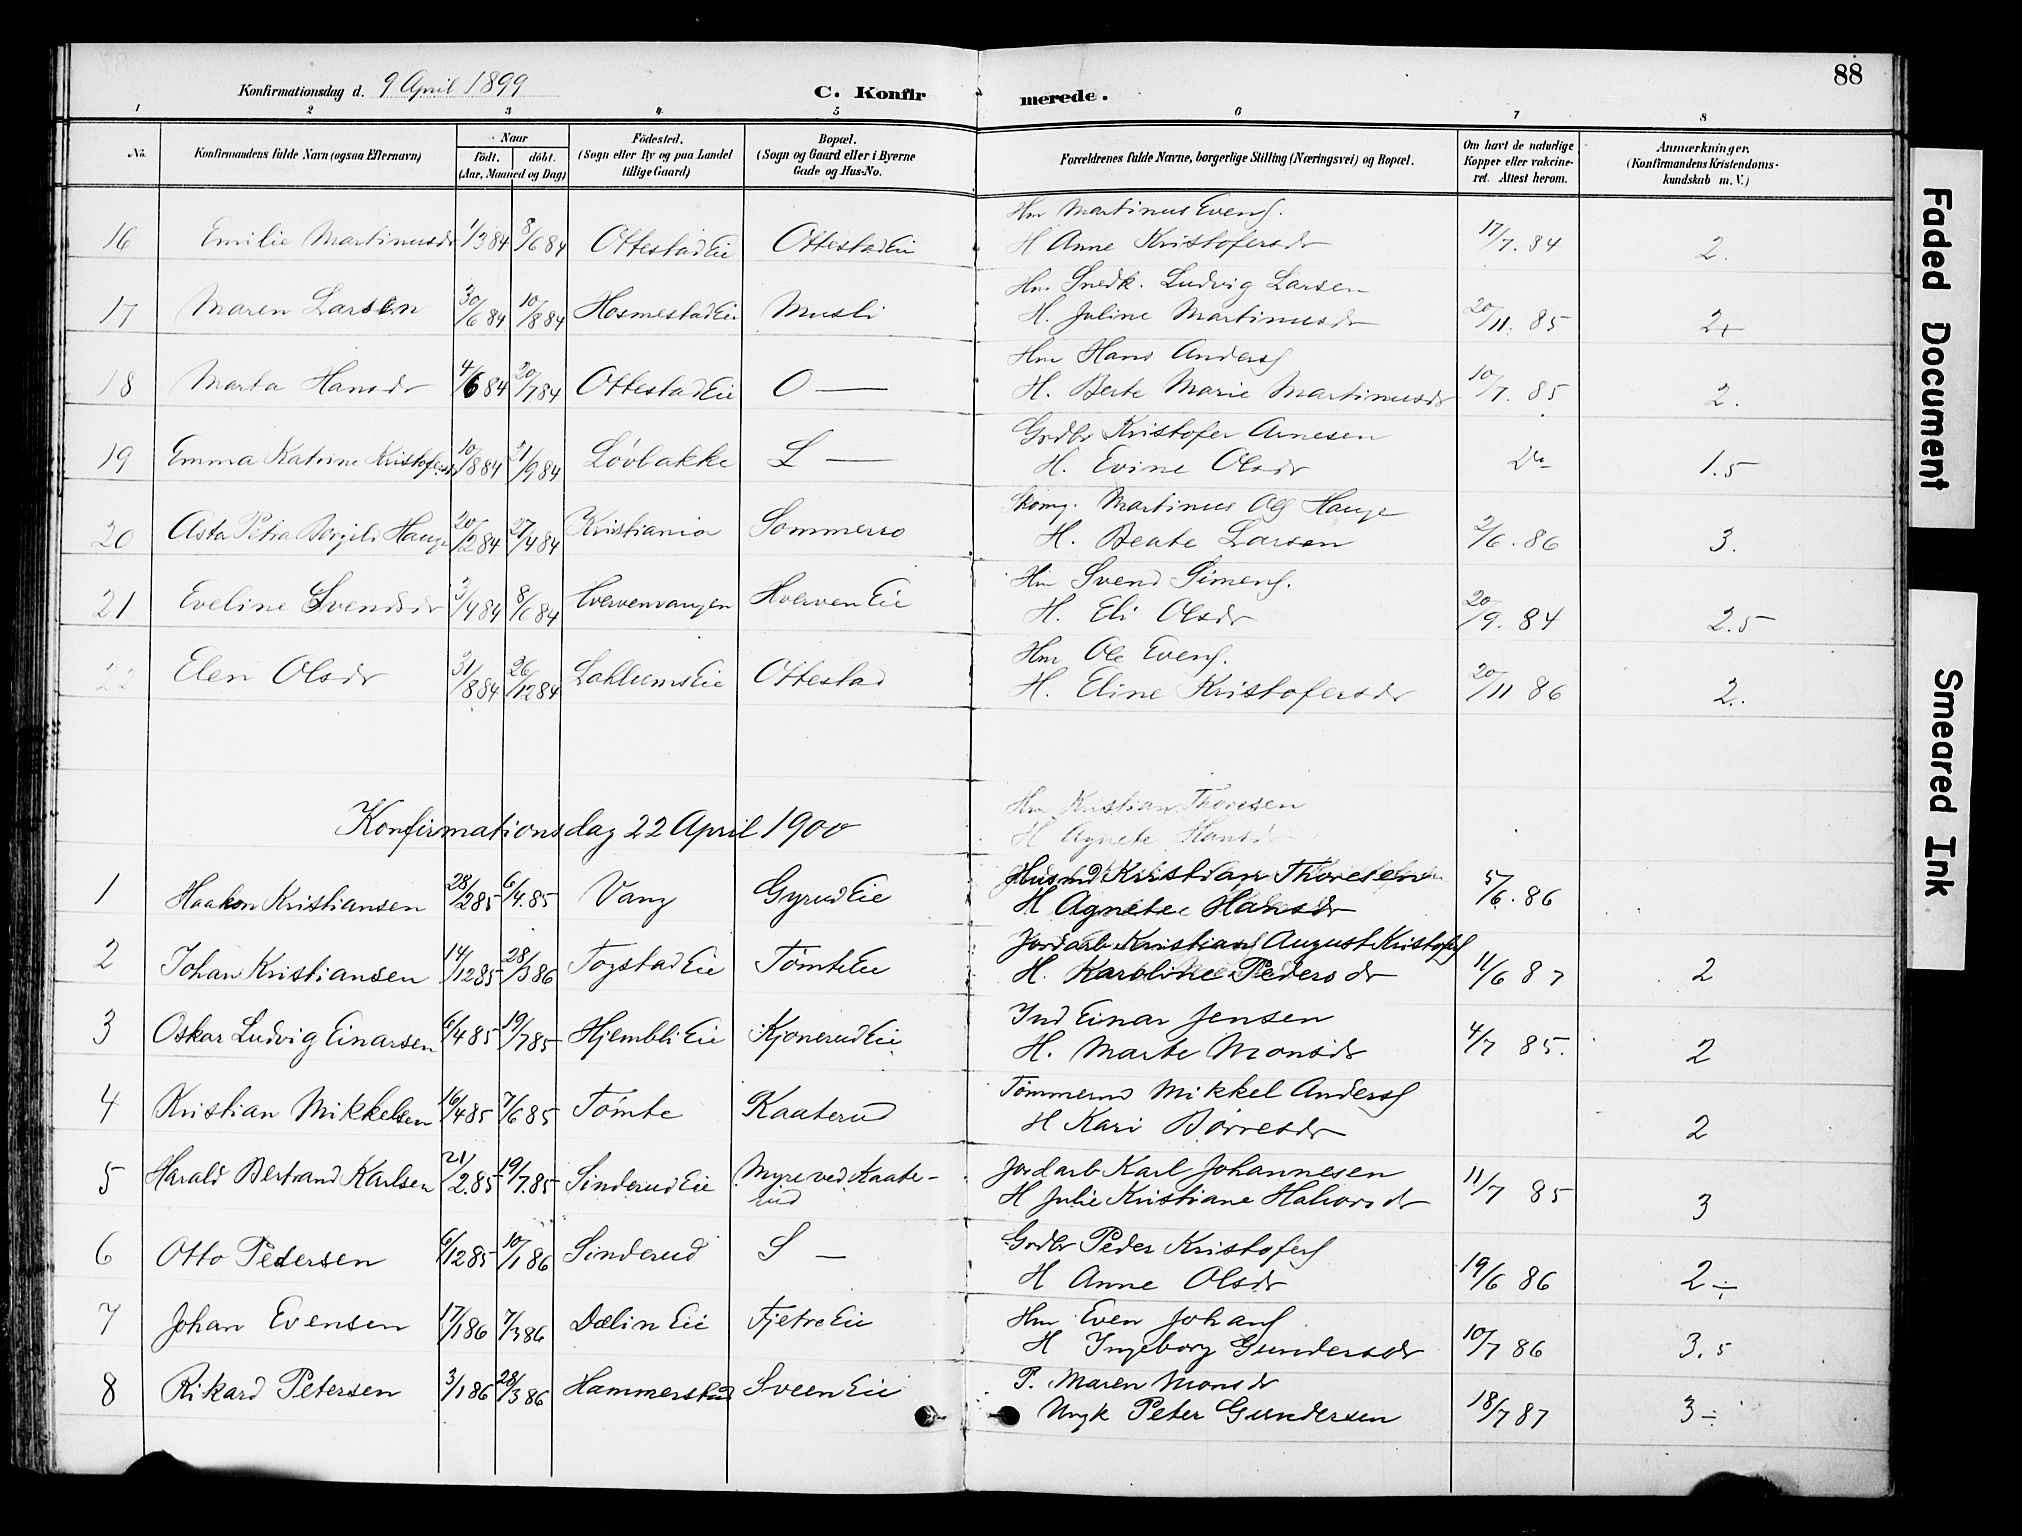 88
Konfirmationsdag d. 9 April 1899 C. Konfirmerede.
1 2 3 4 5 6 7 8
No. Konfirmandens fulde Navn (ogsaa Efternavn) Naar födt. döbt. (Aar, Maaned og Dag) Födested. (Sogn eller By og paa Landet tillige Gaard) Bopæl. (Sogn og Gaard eller i Byerne Gade og Hus-No. Forældrenes fulde Navne, borgerlige Stilling (Næringsvei) og Bopæl. Om havt de naturlige Kopper eller vakcineret. Attest herom. Anmærkninger, (Konfirmandens Kristendomskundskab m. V.)
Hm Martinus Evens.
16 Emilie Martinusdr 1/3 84 8/6 84 Ottestad Eie Ottestad Eie H Anne Kristofersdr 17/7. 84 2.
Hm. Snedk. Ludvig Larsen
17 Maren Larsen 30/6 84 10/8 84 Hosmestad Eie Musli H. Juline Martinusdr 20/11. 85 2+
Hm Hans Anders
18 Marta Hansdr 4/6 84 20/7 84 Ottestad Eie O — H. Berte Marie Martinusdr 10/7. 85 2.
Grdbr Kristofer Arnesen
19 Emma Katrine Kristofersdr 10/8 84 21/9 84 Løvbakke L — H. Evine Olsdr Do 1.5
Skomg. Martinus Ols Hauge
20 Asta Petra Borgild Hauge 20/2 84 27/4 84 Kristiania Sommerro H. Beate Larsen 2/6. 86 3.
Hm Svend Simens.
21 Eveline Svendsdr 3/4 84 8/6 84 Hvervenvangen Hverven Eie H. Eli Olsdr 20/9. 84 2.5
Hm Ole Evens.
22 Elen Olsdr 31/8 84 26/12 84 Lahlums Eie Ottestad H. Eline Kristofersdr 20/11 86 2.
Hm Kristian Thoresen
Konfirmationsdag 22 April 1900 H Agnete Hansdr
Husmd Kristian Thoresen
1 Haakon Kristiansen 28/2 85 6/4. 85 Vang Gyrud Eie H Agnete Hansdr 5/6. 86
Jordarb Kristian August Kristofs
2 Johan Kristiansen 14/12 85 28/3 86 Togstad Eie Tømte Eie H. Karoline Pedersdr 11/6 87 2
Ind Einar Jensen
3 Oskar Ludvig Einarsen 6/4 85 19/7 85 Hjembli Eie Kjonerud Eie H. Marte Monsdr 4/7 85. 2
Tømmermd Mikkel Anders
4 Kristian Mikkelsen 16/4 85 7/6 85 Tømte Kaaterud H Kari Børresdr 2
Jordarb Karl Johannesen
5 Harald Bertrand Karlsen 21/2. 85 19/7. 85 Sinderud Eie Myre ved Kaaterud H Julie Kristiane Halvorsdr 11/7 85 3
Grdbr Peder Kristofers
6 Otto Pedersen 6/12 85 10/1 86 Sinderud S — H Anne Olsdr 19/6 86 2 ÷
Hm Even Johans
7 Johan Evensen 17/1 86 7/3 86 Dælin Eie Fjetre Eie H Ingeborg Gundersdr 10/7 86 3.5
P. Maren Monsdr
8 Rikard Petersen 3/1 86 28/3 86 Hammerstad Sveen Eie Ungk Peter Gundersen 18/7 87 3 ÷
Faded Document
Smeared Ink